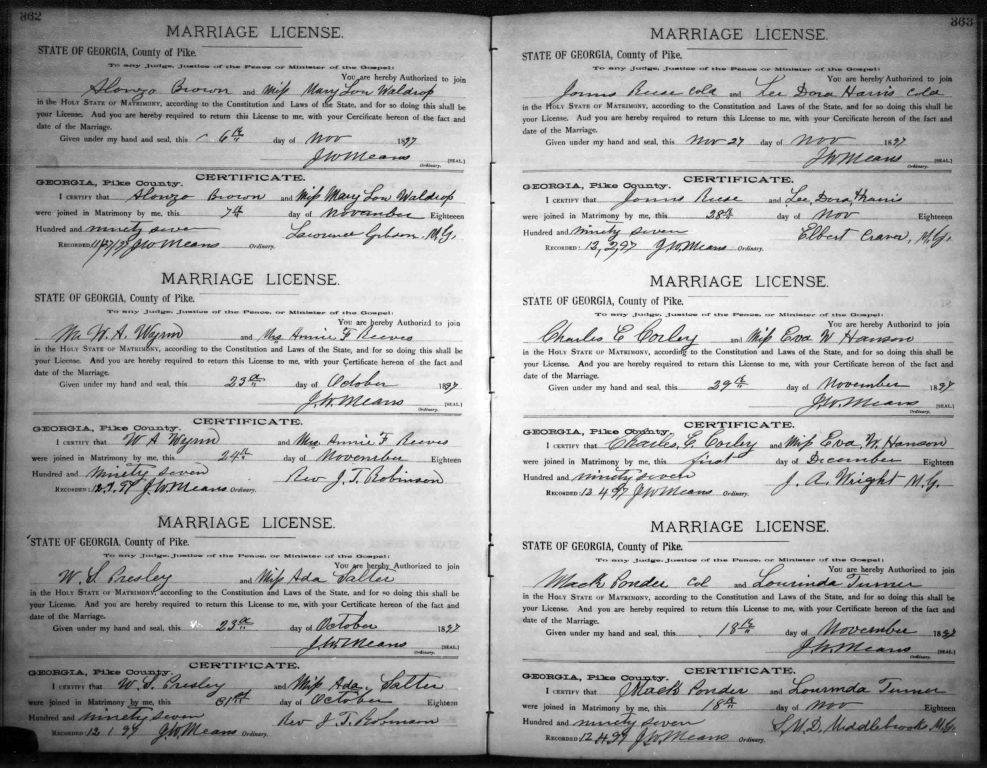 362
MARRIAGE LICENSE.
STATE OF GEORGIA, County of Pike.
To any Judge, Justice of the Peace or Minister of the Gospel:
You are hereby Authorized to join
Alonzo Brown and Miss Mary Lon Waldrop
in the HOLY STATE OF MATRIMONY, according to the Constitution and Laws of the State, and for so doing this shall be
your License. And you are hereby required to return this License to me, with your Certificate hereon of the fact and
date of the Marriage.
Given under my hand and seal, this 6th day of Nov 1897
J.W. Means [SEAL.]
Ordinary.
CERTIFICATE.
GEORGIA, Pike County.
I CERTIFY that Alonzo Brown and Miss Mary Lon Waldrop
were joined in Matrimony by me, this 7th day of November Eighteen
Hundred and ninety seven Lawrence Gibson, M.G.
RECORDED: J.W. Means Ordinary.
MARRIAGE LICENSE.
STATE OF GEORGIA, County of Pike.
To any Judge, Justice of the Peace, or Minister of the Gospel:
You are hereby Authorized to join
W. A. Wynn and Mrs Annie F Reeves
in the HOLY STATE OF MATRIMONY, according to the Constitution and Laws of the State, and for so doing this shall be
your License. And you are hereby required to return this License to me, with your Certificate hereon of the fact and
date of the Marriage.
Given under my hand and seal, this 23d day of October 1897
J.W. Means [SEAL.]
Ordinary.
CERTIFICATE.
GEORGIA, Pike County.
I CERTIFY that W A Wynn and Mrs Annie F Reeves
were joined in Matrimony by me, this 24th day of November Eighteen
Hundred and Ninety seven Rev J. T. Robinson
RECORDED: J.W. Means Ordinary.
MARRIAGE LICENSE.
STATE OF GEORGIA, County of Pike.
To any Judge, Justice of the Peace, or Minister of the Gospel:
You are hereby Authorized to join
W. S. Presley and Miss Ada Salter
in the HOLY STATE OF MATRIMONY, according to the Constitution and Laws of the State, and for so doing this shall be
your License. And you are hereby required to return this License to me, with your Certificate hereon of the fact and
date of the Marriage.
Given under my hand and seal, this 23d day of October 1897
J.W. Means [SEAL.]
Ordinary.
CERTIFICATE.
GEORGIA, Pike County.
I CERTIFY that W. S. Presley and Miss Ada Salter
were joined in Matrimony by me, this 31st day of October Eighteen
Hundred and ninety seven Rev J. T. Robinson
RECORDED 12 1 97 J.W. Means Ordinary.
363
MARRIAGE LICENSE.
STATE OF GEORGIA, County of Pike.
To any Judge, Justice of the Peace or Minister of the Gospel:
You are hereby Authorized to join
Reese cold and Lee Dora Harris cold
in the HOLY STATE OF MATRIMONY, according to the Constitution and Laws of the State, and for so doing this shall be
your License. And you are hereby required to return this License to me, with your Cerificate hereon of the fact and
date of the Marriage.
Given under my hand and seal, this Nov 27 day of Nov 1897
J.W. Means [SEAL.]
Ordinary.
CERTIFICATE.
GEORGIA, Pike County.
I CERTIFY that Reese and Lee Dora Harris
were joined in Matrimony by me, this 28th day of Nov Eighteen
Hundred and ninety seven Elbert Craver, M.G.
RECORDED: 12, 2, 97 J.W. Means Ordinary.
MARRIAGE LICENSE.
STATE OF GEORGIA, County of Pike.
To any Judge, Justice of the Peace, or Minister of the Gospel:
You are hereby Authorized to join
Charles E Corley and Miss Eva W Hanson
in the HOLY STATE OF MATRIMONY, according to the Constitution and Laws of the State, and for so doing this shall be
your License. And you are hereby required to return this License to me, with your Certificate hereon of the fact and
date of the Marriage.
Given under my hand and seal, this 29th day of November 1897
J.W. Means [SEAL.]
Ordinary.
CERTIFICATE.
GEORGIA, Pike County.
I CERTIFY that Charles, E. Corley and Miss Eva, W. Hanson
were joined in Matrimony by me, this first day of December Eighteen
Hundred and ninety seven J. A. Wright M.G.
RECORDED 12 4 97 J.W. Means Ordinary.
MARRIAGE LICENSE.
STATE OF GEORGIA, County of Pike.
To any Judge, Justice of the Peace, or Minister of the Gospel:
You are hereby Authorized to join
Mack Ponder Col and Lourinda Turner
in the HOLY STATE OF MATRIMONY, according to the Constitution and Laws of the State, and for so doing this shall be
your License. And you are hereby required to return this License to me, with your Certificate hereon of the fact and
date of the Marriage.
Given under my hand and seal, this 18th day of November 1897
J.W. Means [SEAL.]
Ordinary.
CERTIFICATE.
GEORGIA, Pike County.
I CERTIFY that Mack Ponder and Lourinda Turner
were joined in Matrimony by me, this 18th day of Nov Eighteen
Hundred and ninety seven S.M.D. Middlebrooks M.G.
RECORDED 12 4 97 J.W. Means Ordinary.